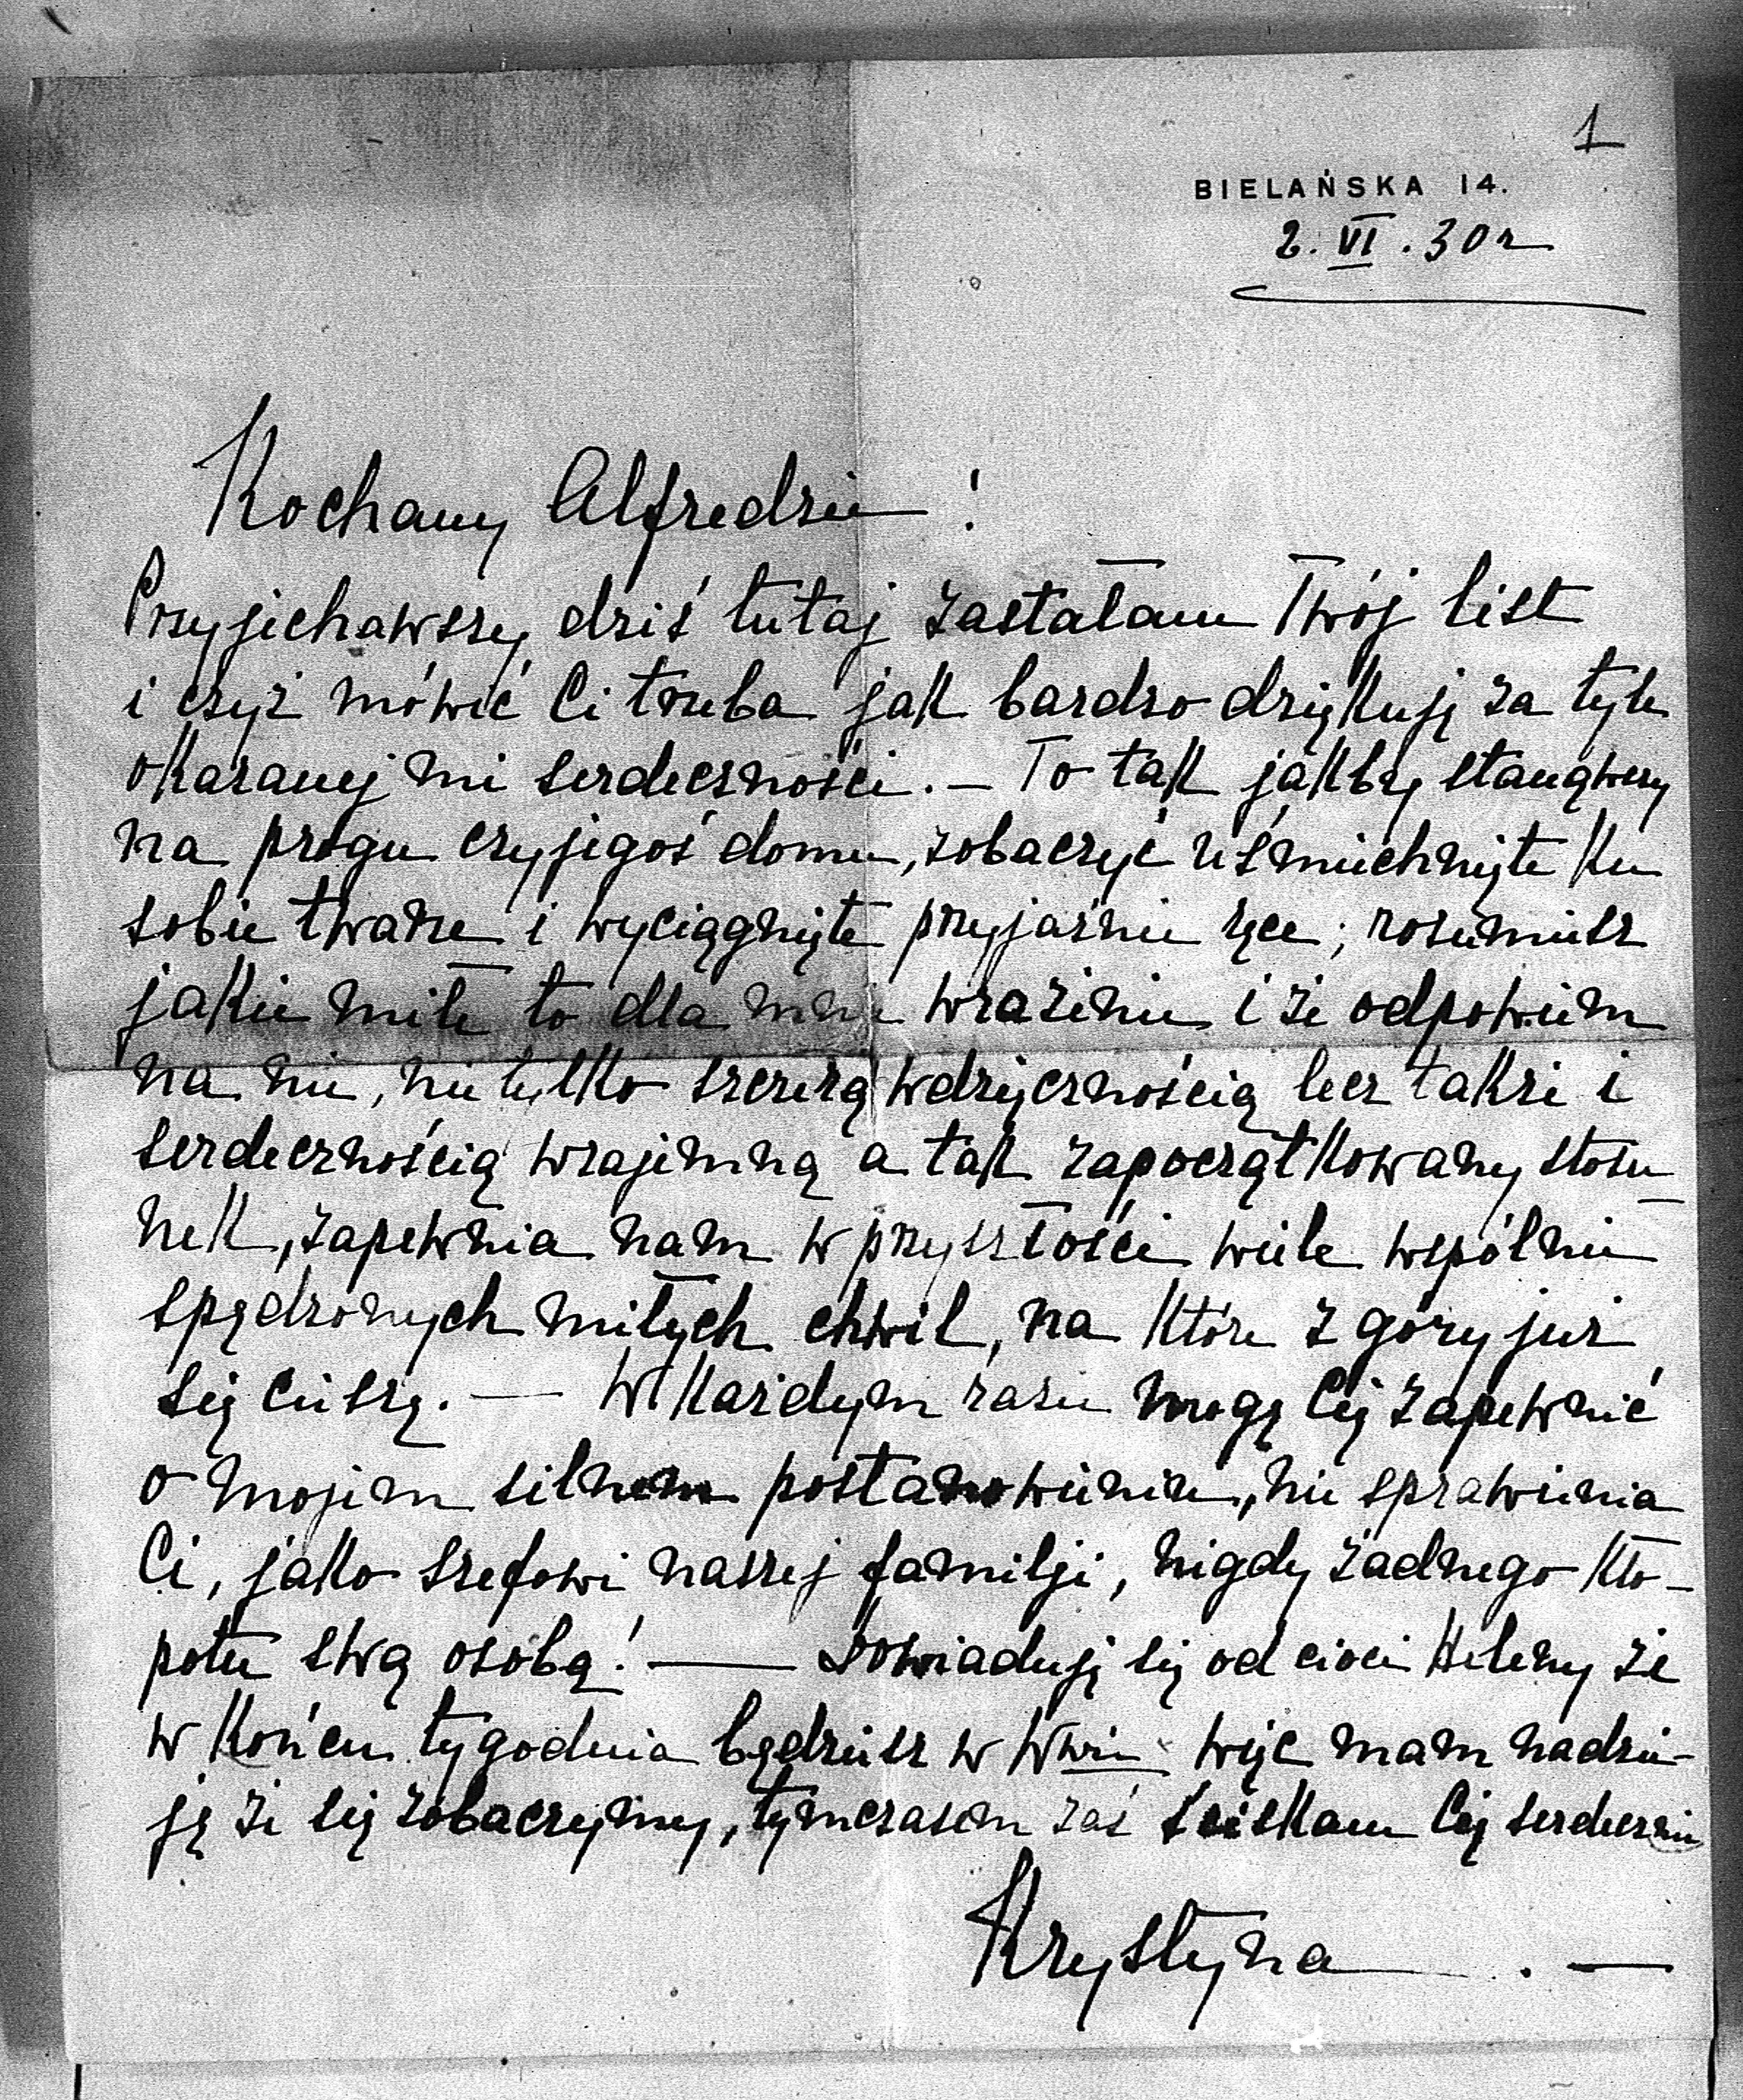 1
BIELAŃSKA 14.
2. VI. 30 r
Kochany Alfredzie !
Przyjechawszy dziś tutaj zastałam Twój list
i czyż mówić Ci trzeba jak bardzo dziękuję za tyle
okazanej mi serdeczności. – To tak jakby stanąwszy
na progu czyjegoś domu, zobaczyć uśmiechnięte ku
sobie twarze i wyciągnięte przyjaźnie ręce; rozumiesz
jakie miłe to dla mnie wrażenie i że odpowiem
na nie, nie tylko szczerą wdzięcznością lecz także i
serdecznością wzajemną a tak zapoczątkowany stosu
nek, zapewnia nam w przyszłości wiele wspólnie
spędzonych miłych chwil, na które z góry już
się cieszę. — W każdym razie mogę Cię zapewnić
o mojem silnem postanowieniu, nie sprawienia
Ci, jako szefowi naszej familji, nigdy żadnego kło-
potu swą osobą! — Dowiaduję się od cioci Heleny że
w końcu tygodnia będziesz w Wwie więc mam nadzie-
ję że się zobaczymy, tymczasem zaś ściskam Cię serdecznie
Krystyna . —